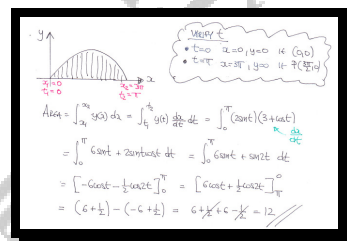 y
VERIFY t
• t=0 x=0, y=0 ie (0,0)
• t=π x=3π, y=0 ie
x₁=0
t₁=0
x₂=3π
t₂=π
x
AREA = ∫_{x₁}^{x₂} y(x) dx = ∫_{t₁}^{t₂} y(t) dx/dt dt = ∫_0^π (2sint)(3+cost) dt
dx/dt
= ∫_0^π 6sint + 2sintcost dt = ∫_0^π 6sint + sin2t dt
= [-6cost - ½cos2t]_0^π = [6cost + ½cos2t]_π^0
= (6+½) - (-6+½) = 6+½+6-½ = 12